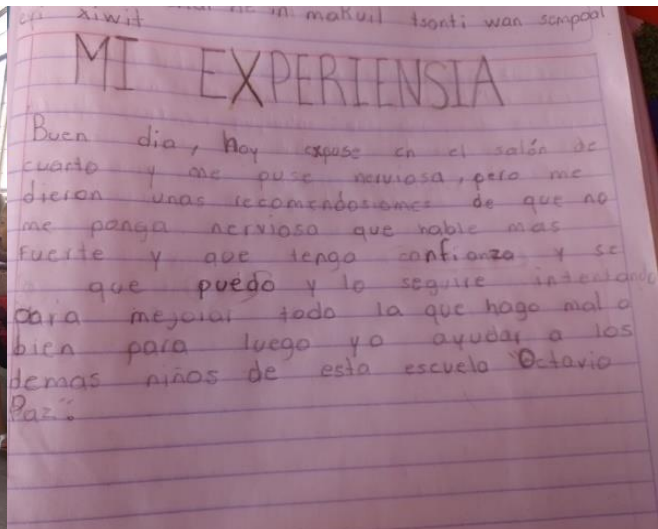 xiwit in makuil tsonti wan sempoal
MI EXPERIENSIA
Buen dia, hoy expuse en el salón de
cuarto y me puse nerviosa, pero me
dieron unas recomendosiones de que no
me ponga nerviosa que hable mas
fuerte y que tenga confianza y se
que puedo y lo seguire intentando
para mejorar todo la que hago mal o
bien para luego yo ayudar a los
demas niños de esta escuela "Octavio
Paz".